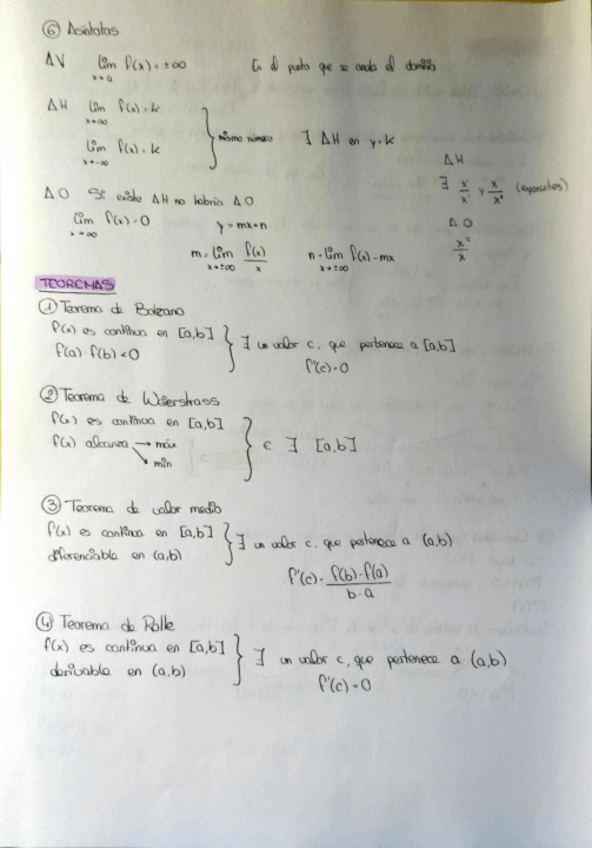 ⑥ Asíntotas
AV lim f(x) = ±∞ En el punto que se anula el dominio
x→a
AH lim f(x) = k
x→∞
lim f(x) = k
x→-∞
} mismo número ∃ AH en y = k
AH
∃ x/x y x/x² (exponentes)
A.O Si existe AH no habría A.O
lim f(x) = 0 y = mx+n
x→∞
m = lim f(x)/x n = lim f(x) - mx
x→±∞ x→±∞
A.O
x²/x
TEOREMAS
① Teorema de Bolzano
f(x) es continua en [a,b]
f(a) · f(b) < 0
} ∃ un valor c, que pertenece a [a,b]
f'(c) = 0
② Teorema de Weierstrass
f(x) es continua en [a,b]
f(x) alcanza → máx
↘ mín
} c ∃ [a,b]
③ Teorema de valor medio
f(x) es continua en [a,b]
diferenciable en (a,b)
} ∃ un valor c, que pertenece a (a,b)
f'(c) = f(b) - f(a) / b - a
④ Teorema de Rolle
f(x) es continua en [a,b]
derivable en (a,b)
} ∃ un valor c, que pertenece a (a,b)
f'(c) = 0